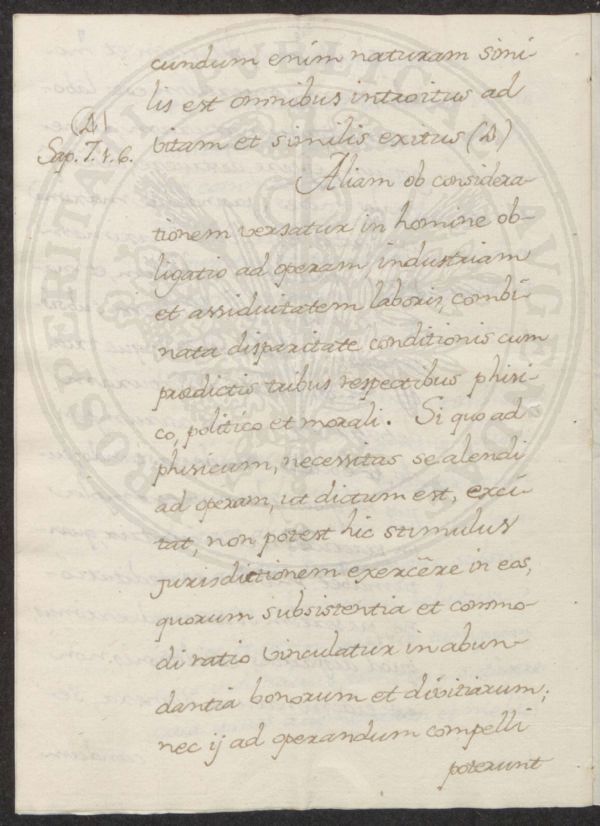 cundum enim naturam simi-
lis est omnibus introitus ad
vitam et similis exitus (A)
(A)
Sap. 7. v. 6.
Aliam ob considera-
tionem versatur in homine ob-
ligatio ad operam, industriam
et assiduitatem laboris, combi-
nata disparitate conditionis cum
prædictis tribus respectibus phisi-
co, politico et morali. Si quo ad
phisicum, necessitas se alendi
ad operam, ut dictum est, exci-
tat, non potest hic stimulus
jurisdictionem exercēre in eos,
quorum subsistentia et commo-
di ratio vinculatur in abun-
dantia bonorum et divitiarum;
nec ij ad operandum compelli
poterunt
PROSPERITATI PVBLICÆ AVGENDÆ